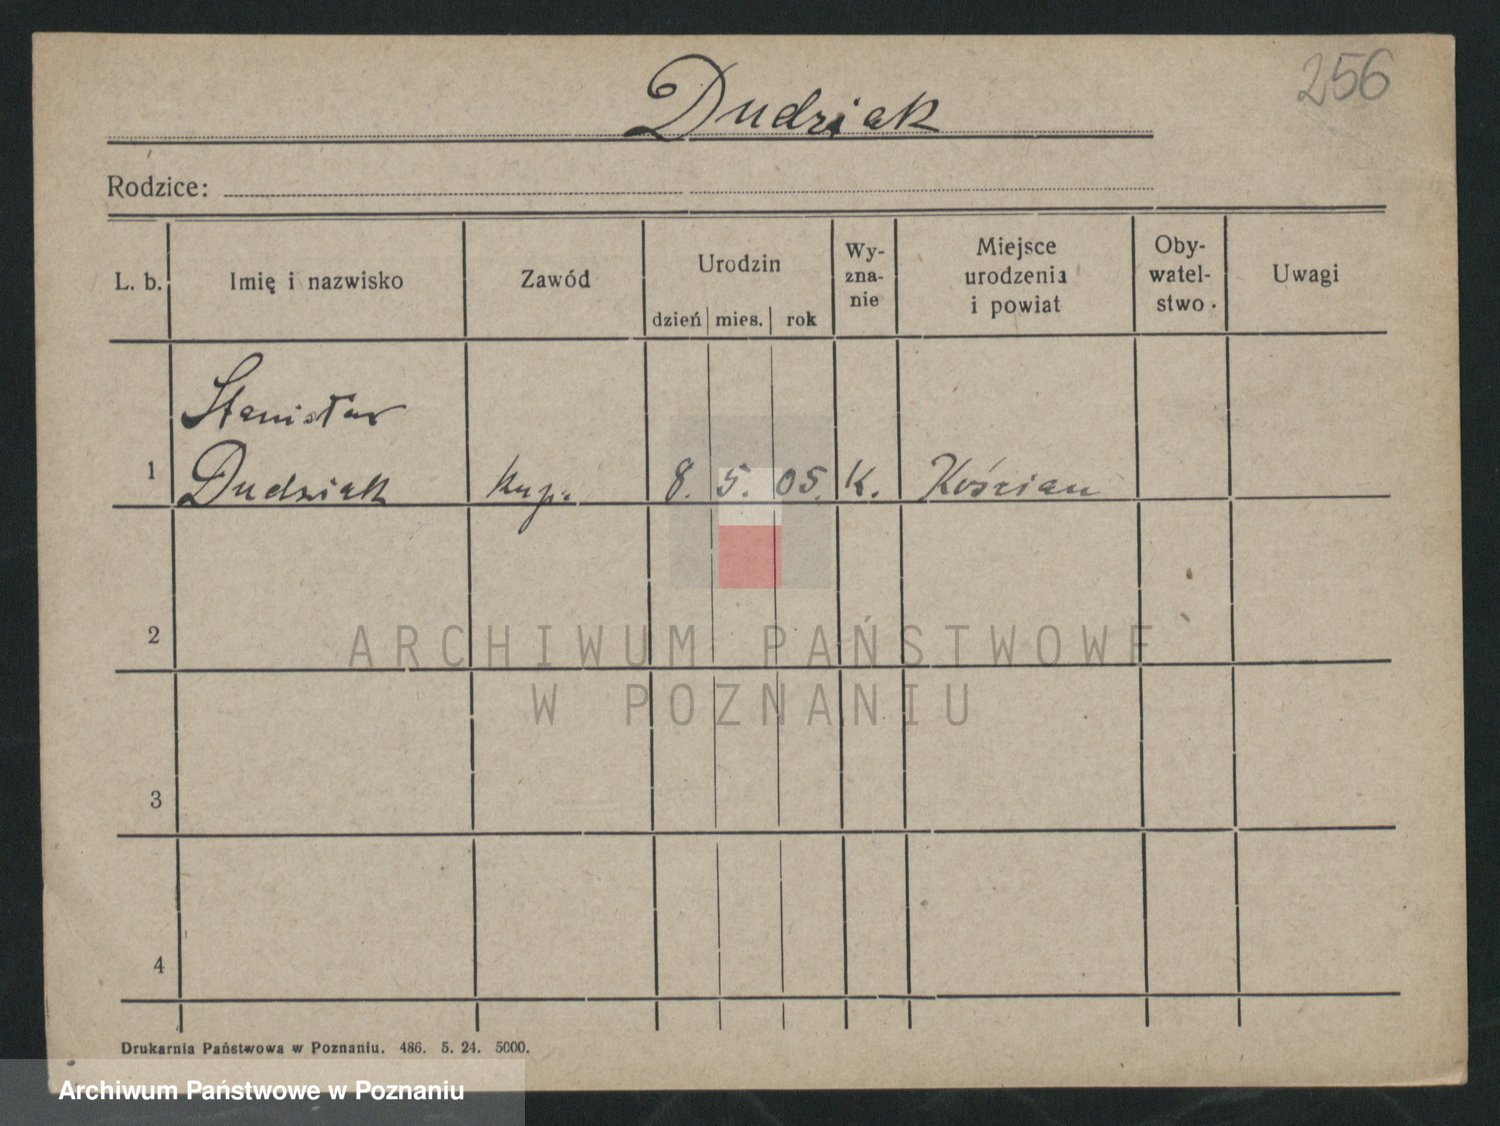 256
Dudziak
Rodzice:
L. b.
Imię i nazwisko
Zawód
Urodzin
dzień mies. rok
Wy-
zna-
nie
Miejsce
urodzenia
i powiat
Oby-
watel-
stwo
Uwagi
Stanisław
1 Dudziak Kup. 8. 5. 05. K. Kościan
2
ARCHIWUM PAŃSTWOWE
W POZNANIU
3
4
Drukarnia Państwowa w Poznaniu. 486. 5. 24. 5000.
Archiwum Państwowe w Poznaniu